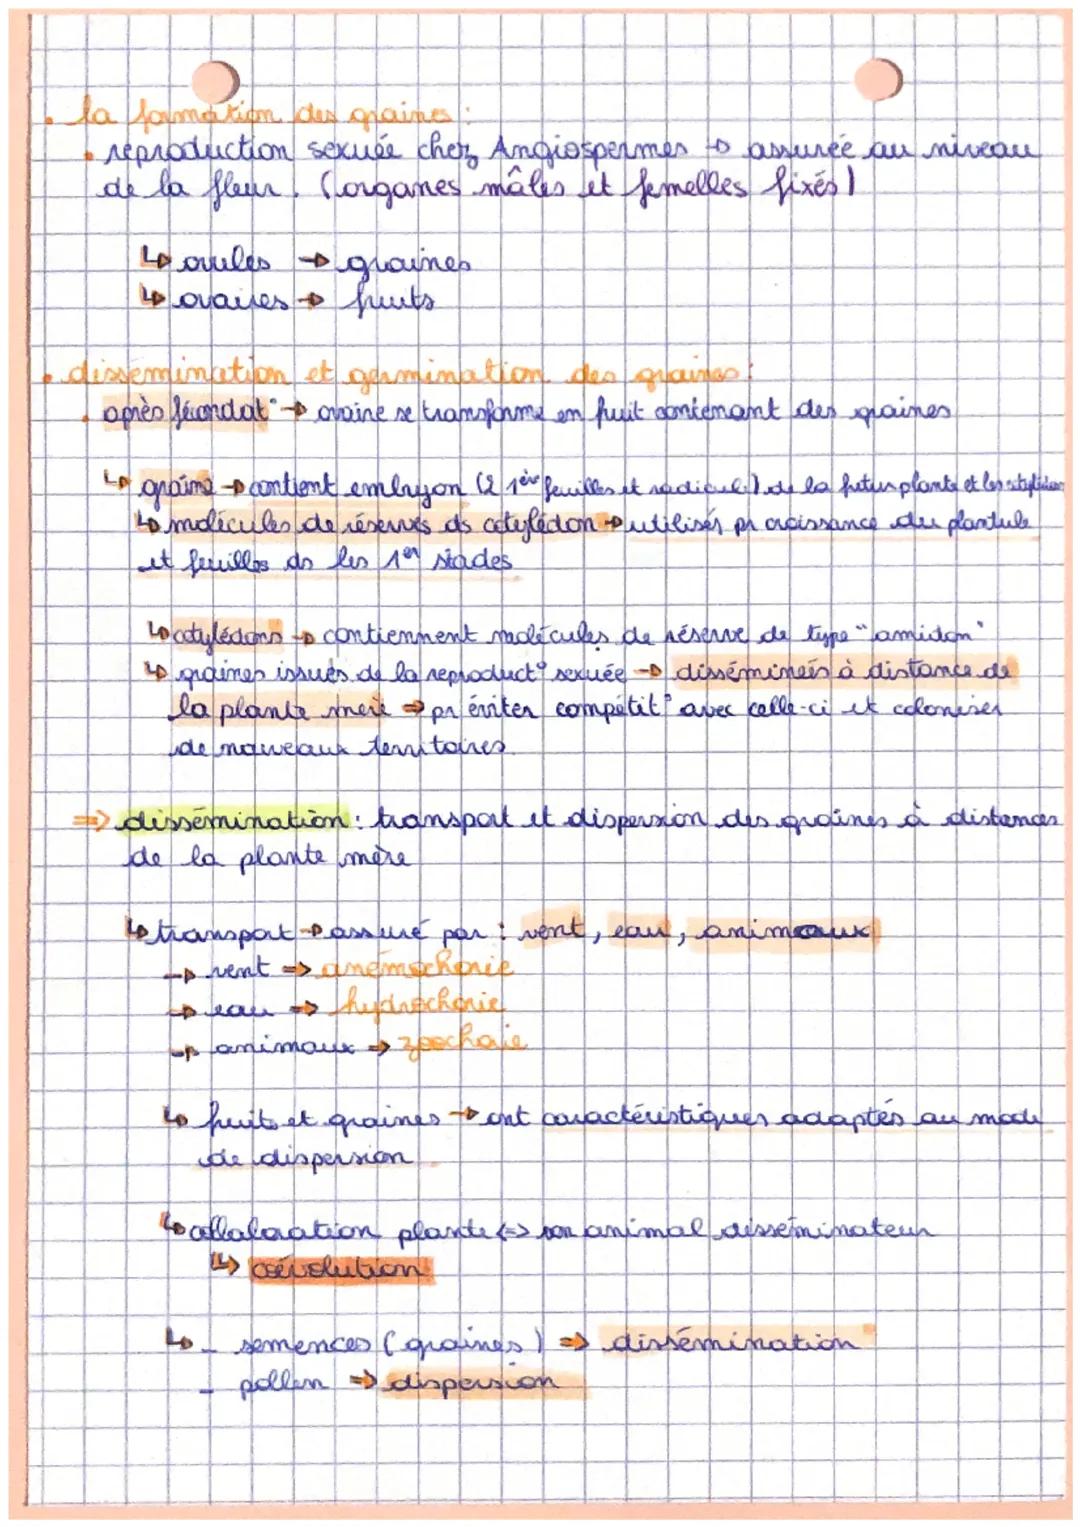 . la formation des graines :
. reproduction sexuée chez Angiospermes → assurée au niveau
de la fleur. (organes mâles et femelles fixés)
↳ ovules → graines
↳ ovaires → fruits
. dissémination et germination des graines :
. après fécondat° → ovaire se transforme en fruit contenant des graines
↳ graine → contient embryon (2 1ères feuilles et radicule) de la futur plante et les cotylédons
↳ molécules de réserves ds cotylédon → utilisés pr croissance du plantule
et feuilles ds les 1er stades
↳ cotylédons → contiennent molécules de réserve de type "amidon"
↳ graines issues de la reproduct° sexuée → disséminées à distance de
la plante mère ⇒ pr éviter compétit° avec celle-ci et coloniser
de nouveaux territoires
⇒ dissémination : transport et dispersion des graines à distances
de la plante mère
↳ transport → assuré par : vent, eau, animaux
→ vent ⇒ anémochorie
→ eau ⇒ hydrochorie
→ animaux ⇒ zoochorie
↳ fruits et graines → ont caractéristiques adaptés au mode
de dispersion
↳ collaboration plante <=> son animal disséminateur
↳ coévolution
↳ - semences (graines) ⇒ dissémination
- pollen ⇒ dispersion